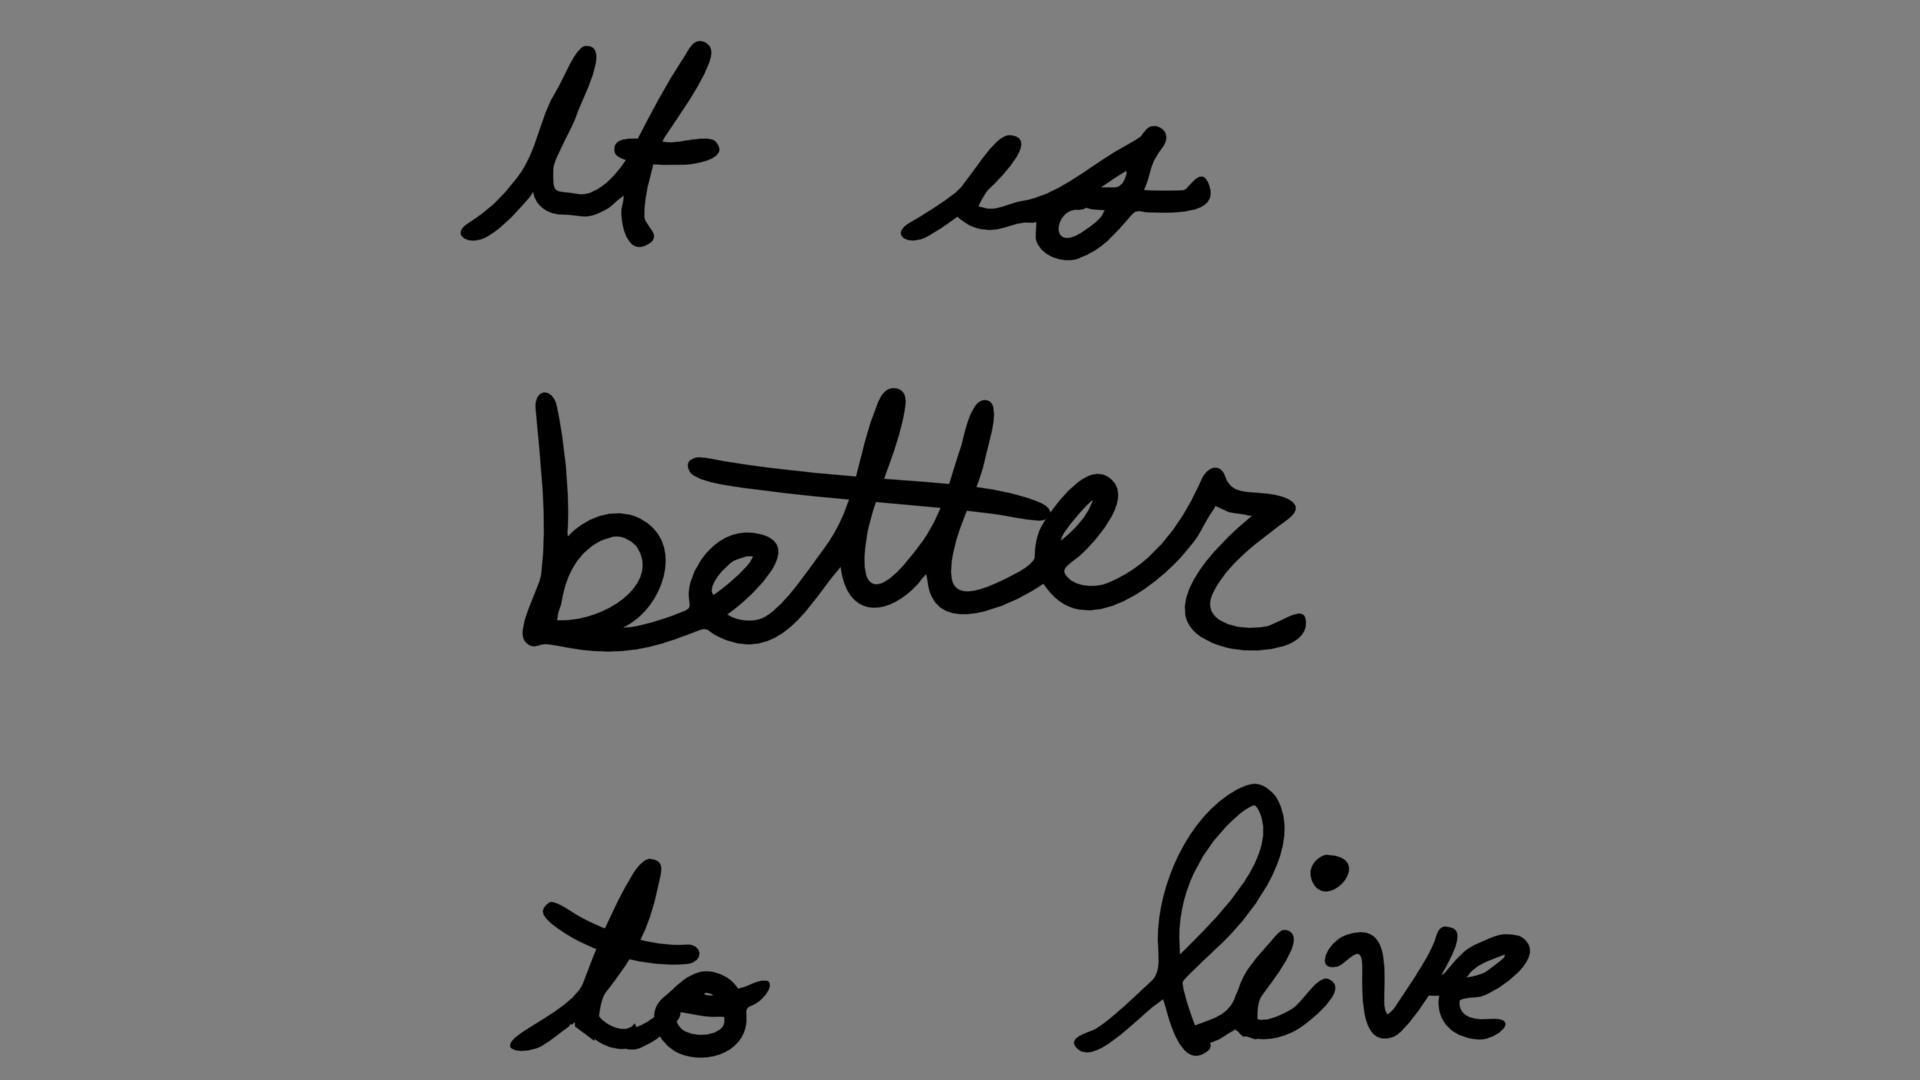 It is
better
to live